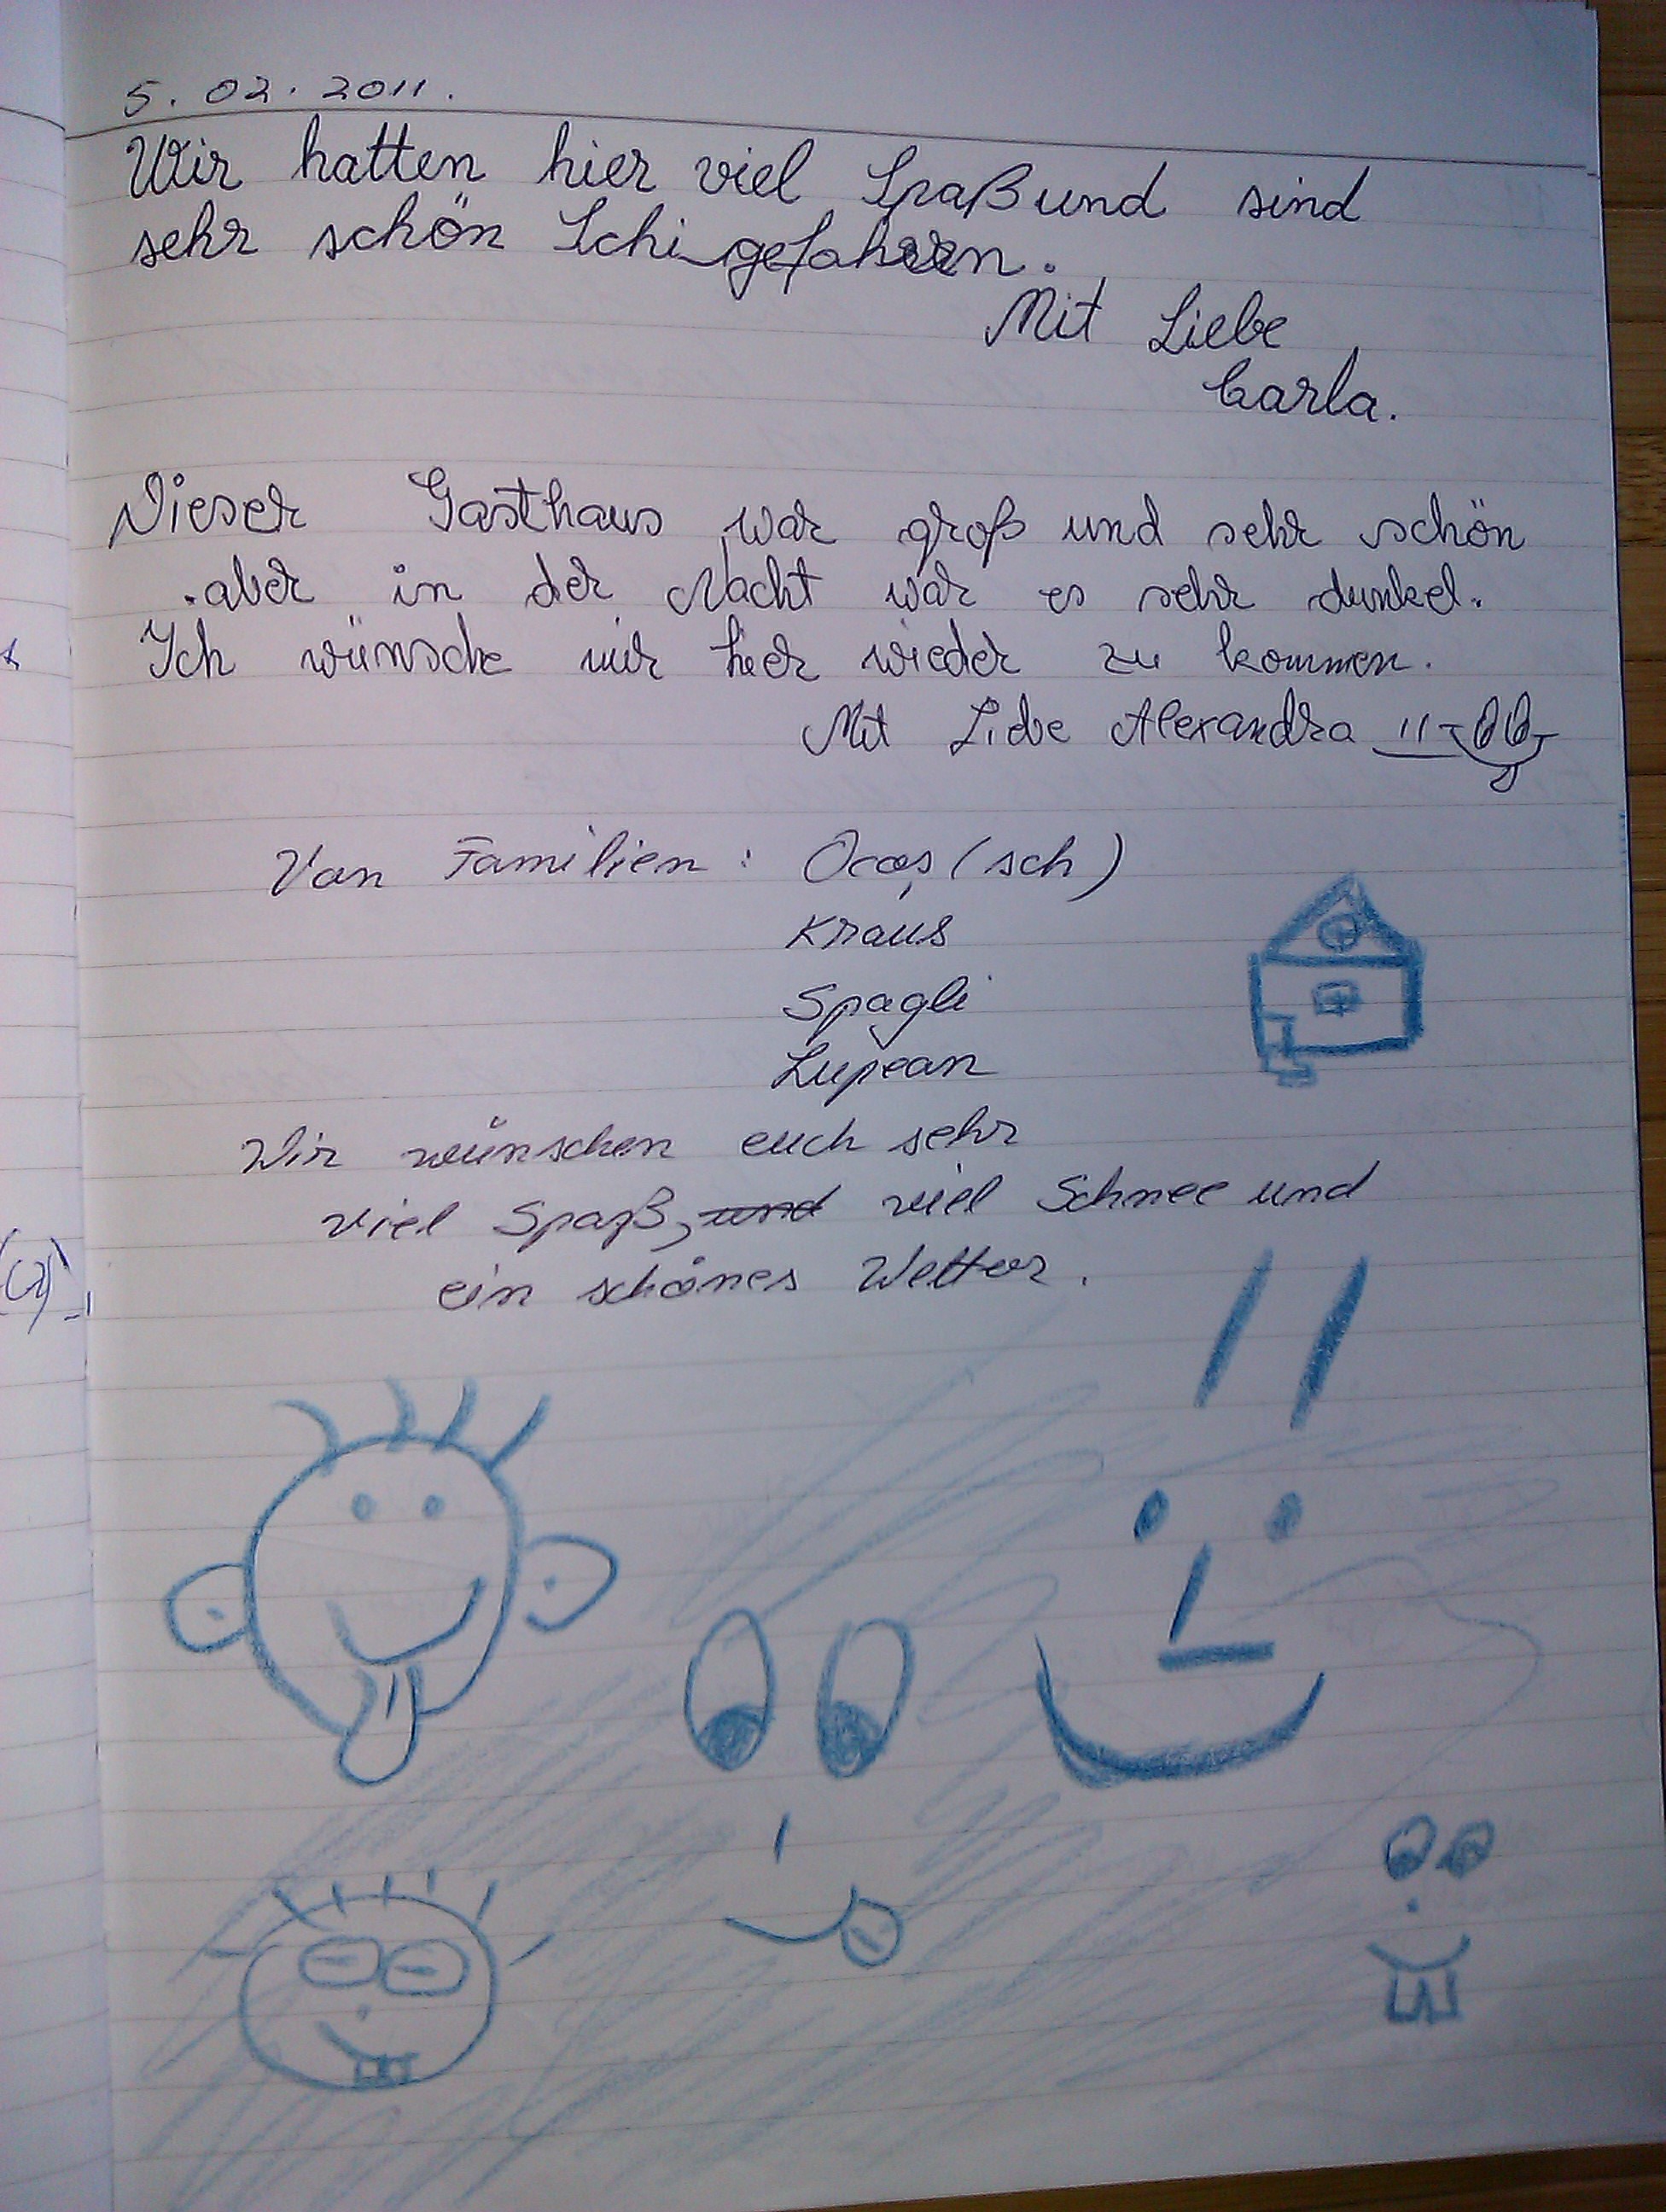 5. 02. 2011.
Wir hatten hier viel Spaß und sind
sehr schön Schi gefahren.
Mit Liebe
Carla.
Dieser Gasthaus war groß und sehr schön
aber in der Nacht war es sehr dunkel.
Ich wünsche mir hier wieder zu kommen.
Mit Liebe Alexandra
Von Familien: Ocoș (sch)
Kraus
Spagli
Lupean
Wir wünschen euch sehr
viel Spaß, und viel Schnee und
ein schönes Wetter.